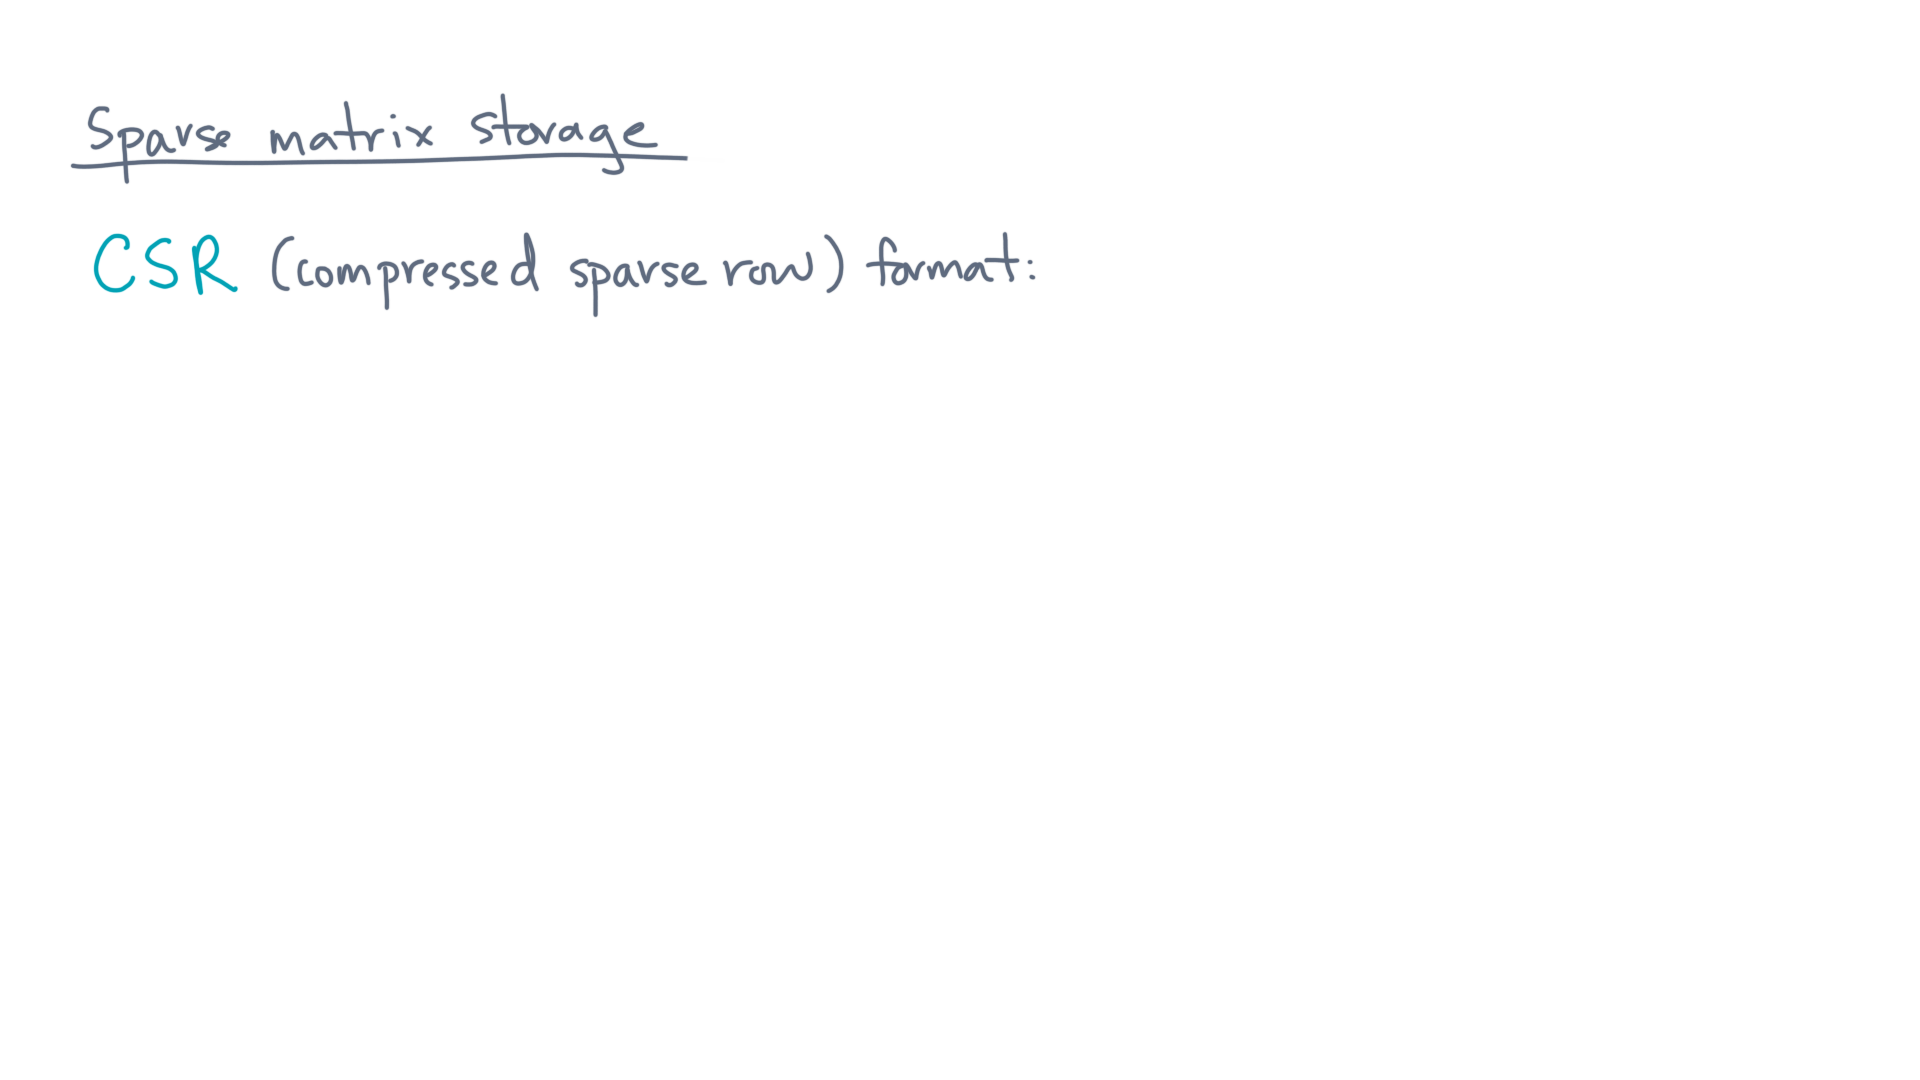 Sparse matrix storage
CSR (compressed sparse row) format: